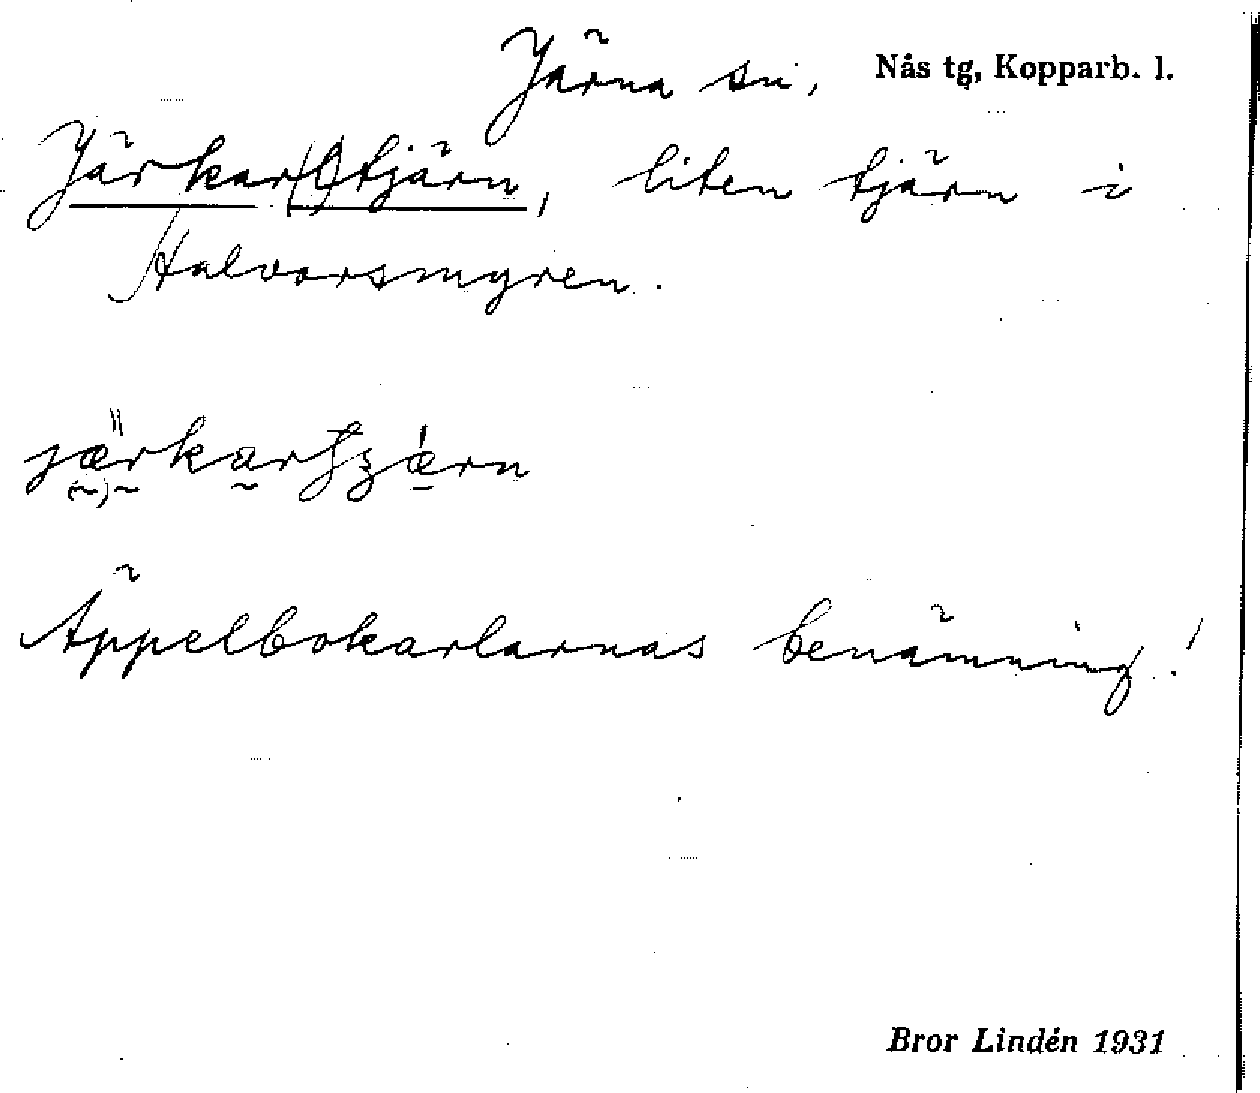 Järna sn, Nås tg, Kopparb. l.
Järkar(s)tjärn, liten tjärn i
Halvorsmyren.
Äppelbokarlarnas benämning!
Bror Lindén 1931